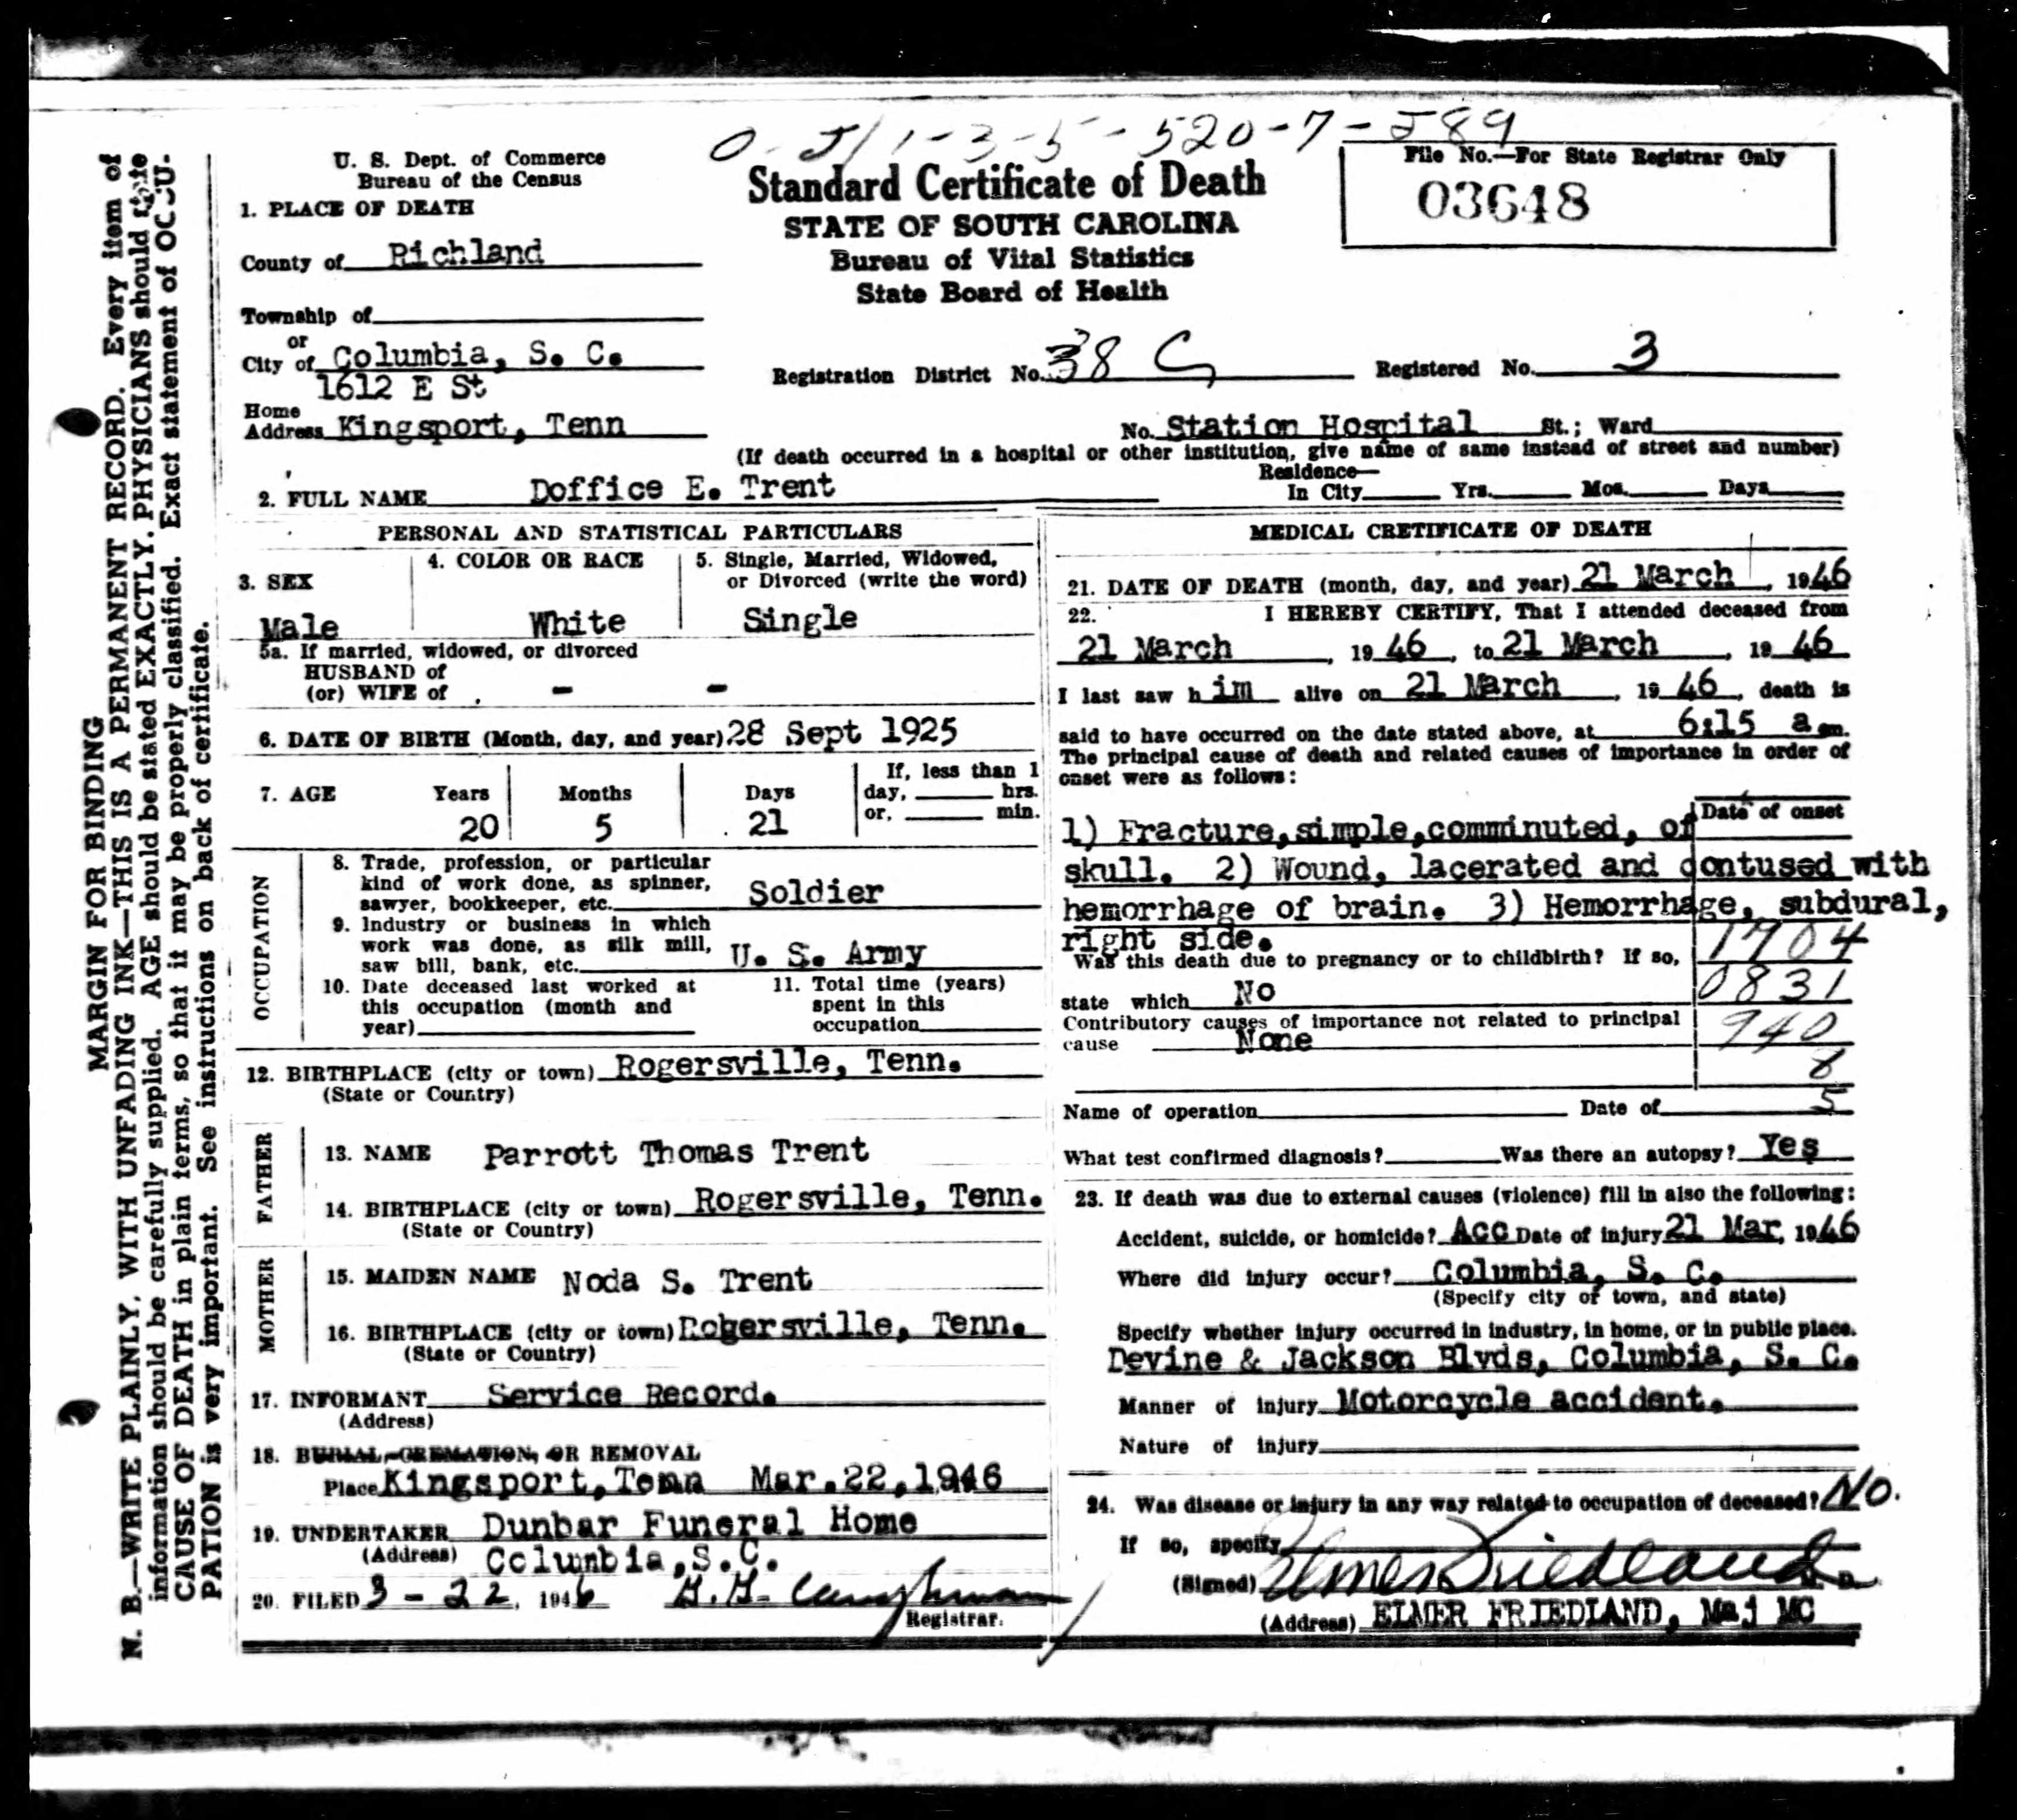 0-5/1-3-5-520-7-589
U. S. Dept. of Commerce
Bureau of the Census
Standard Certificate of Death
STATE OF SOUTH CAROLINA
Bureau of Vital Statistics
State Board of Health
File No.—For State Registrar Only
03648
1. PLACE OF DEATH
County of Richland
Township of
or
City of Columbia, S. C.
Registration District No. 38 C
Registered No. 3
1612 E St
Home
Address Kingsport, Tenn
No. Station Hospital St.; Ward
(If death occurred in a hospital or other institution, give name of same instead of street and number)
2. FULL NAME Doffice E. Trent
Residence—
In City Yrs. Mos. Days
PERSONAL AND STATISTICAL PARTICULARS
3. SEX
Male
4. COLOR OR RACE
White
5. Single, Married, Widowed,
or Divorced (write the word)
Single
5a. If married, widowed, or divorced
HUSBAND of
(or) WIFE of - -
6. DATE OF BIRTH (Month, day, and year) 28 Sept 1925
7. AGE Years Months Days
20 5 21
If, less than 1
day, hrs.
or, min.
OCCUPATION
8. Trade, profession, or particular
kind of work done, as spinner,
sawyer, bookkeeper, etc. Soldier
9. Industry or business in which
work was done, as silk mill,
saw bill, bank, etc. U. S. Army
10. Date deceased last worked at
this occupation (month and
year)
11. Total time (years)
spent in this
occupation
12. BIRTHPLACE (city or town) Rogersville, Tenn.
(State or Country)
FATHER
13. NAME Parrott Thomas Trent
14. BIRTHPLACE (city or town) Rogersville, Tenn.
(State or Country)
MOTHER
15. MAIDEN NAME Noda S. Trent
16. BIRTHPLACE (city or town) Rogersville, Tenn.
(State or Country)
17. INFORMANT Service Record.
(Address)
18. BURIAL, CREMATION, OR REMOVAL
Place Kingsport, Tenn Mar.22,1946
19. UNDERTAKER Dunbar Funeral Home
(Address) Columbia,S.C.
20. FILED 3-22, 1946
Registrar.
MEDICAL CRETIFICATE OF DEATH
21. DATE OF DEATH (month, day, and year) 21 March, 1946
22. I HEREBY CERTIFY, That I attended deceased from
21 March, 1946, to 21 March, 1946
I last saw him alive on 21 March, 1946, death is
said to have occurred on the date stated above, at 6:15 a m.
The principal cause of death and related causes of importance in order of
onset were as follows:
Date of onset
1) Fracture,simple,comminuted, of
skull. 2) Wound, lacerated and contused with
hemorrhage of brain. 3) Hemorrhage, subdural,
right side.
1704
Was this death due to pregnancy or to childbirth? If so,
state which No
0831
Contributory causes of importance not related to principal
cause None
940
8
Name of operation Date of 5
What test confirmed diagnosis? Was there an autopsy? Yes
23. If death was due to external causes (violence) fill in also the following:
Accident, suicide, or homicide? Acc Date of injury 21 Mar, 1946
Where did injury occur? Columbia, S. C.
(Specify city or town, and state)
Specify whether injury occurred in industry, in home, or in public place.
Devine & Jackson Blvds, Columbia, S. C.
Manner of injury Motorcycle accident.
Nature of injury
24. Was disease or injury in any way related to occupation of deceased? No.
If so, specify
(Signed) Elmer Friedland
(Address) ELMER FRIEDLAND, Maj MC
MARGIN FOR BINDING
N. B.—WRITE PLAINLY, WITH UNFADING INK—THIS IS A PERMANENT RECORD. Every item of
information should be carefully supplied. AGE should be stated EXACTLY. PHYSICIANS should state
CAUSE OF DEATH in plain terms, so that it may be properly classified. Exact statement of OCCU-
PATION is very important. See instructions on back of certificate.